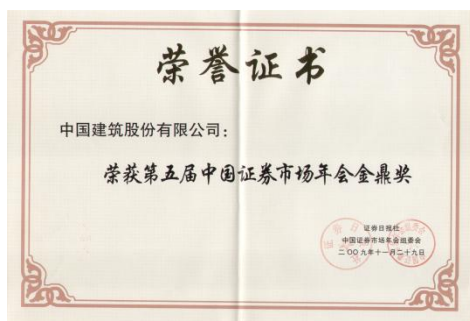 荣誉证书
中国建筑股份有限公司：
荣获第五届中国证券市场年会金鼎奖
证券日报社
中国证券市场年会组委会
二〇〇九年十一月二十九日